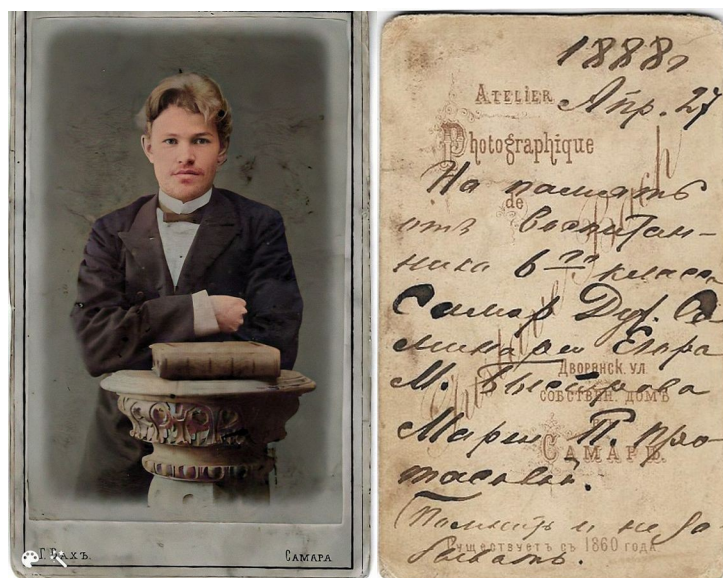 Г. БАХЪ.
САМАРА
1888г
Апр. 27
ATELIER
Photographique
de
На память
отъ воспитан-
ника 6го класса
Самар Дух. Се-
минаріи
М. Быстрова
Маріи П. Про-
тасовой.
Помнить и не за
бывать.
Дворянск. ул.
СОБСТВЕН. ДОМЪ
САМАРѢ.
Существуетъ съ 1860 года